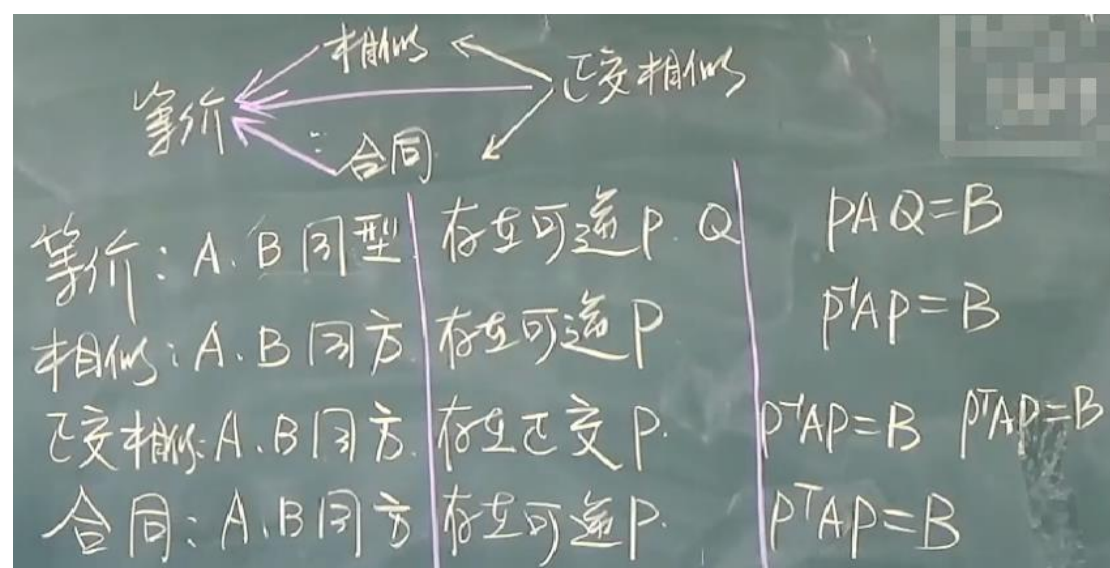 相似
正交相似
等价
合同
等价：A、B同型 存在可逆P、Q PAQ=B
相似：A、B同方 存在可逆P P⁻¹AP=B
正交相似：A、B同方 存在正交P P⁻¹AP=B PᵀAP=B
合同：A、B同方 存在可逆P PᵀAP=B